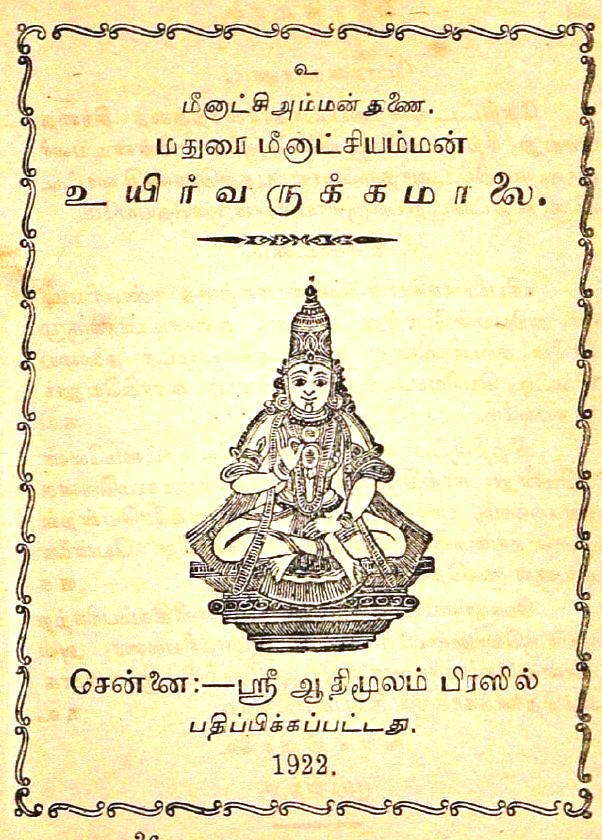 உ
மீனாட்சிஅம்மன் துணை.
மதுரை மீனாட்சியம்மன்
உயிர்வருக்கமாலை.
சென்னை:—ஸ்ரீ ஆதிமூலம் பிரஸில்
பதிப்பிக்கப்பட்டது.
1922.